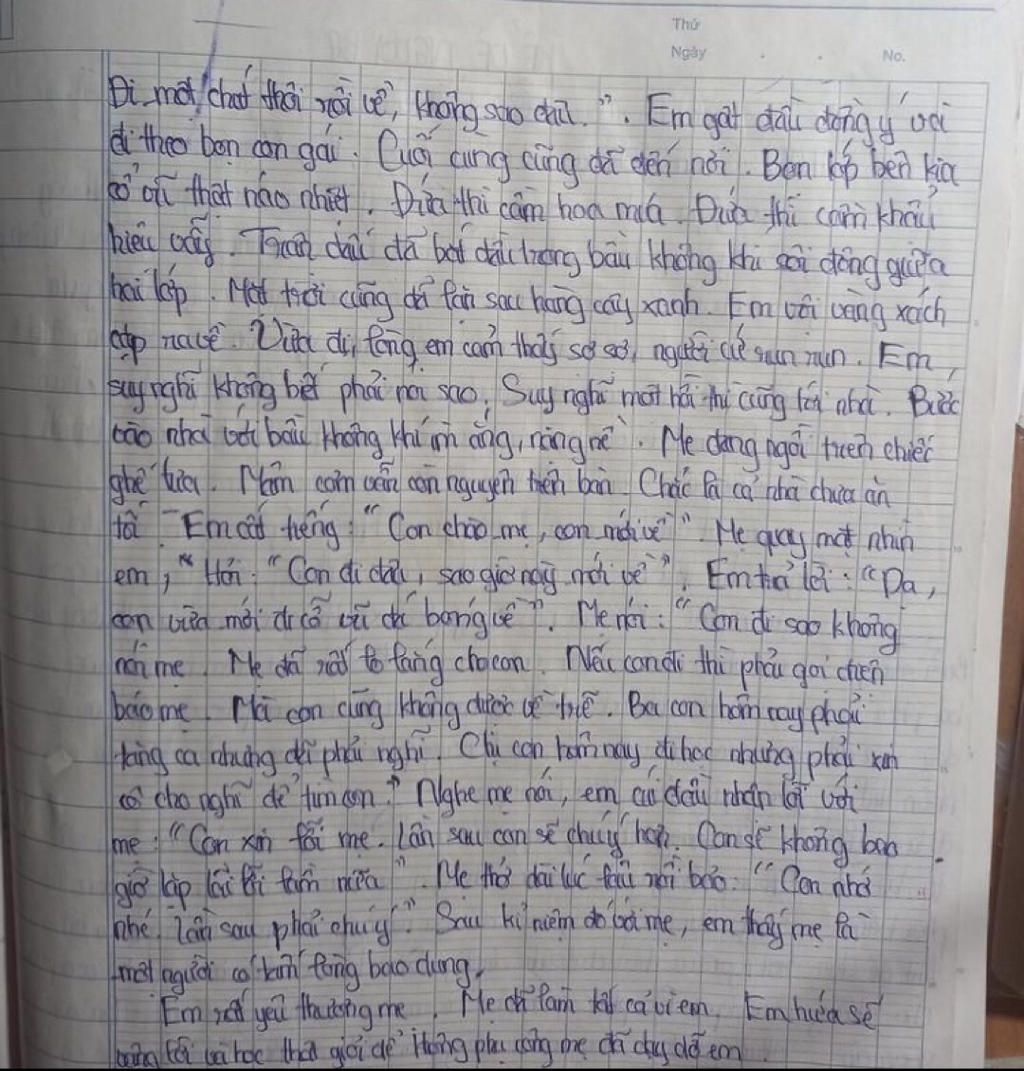 Thứ
Ngày No.
Đi một chút thôi rồi về, không sao đâu.". Em gật đầu đồng ý và
đi theo bọn con gái. Cuối cùng cũng đã đến nơi. Bọn lớp bên kia
cổ vũ thật náo nhiệt. Đứa thì cầm hoa múa. Đứa thì cầm khẩu
hiệu vẫy. Trận đấu đã bắt đầu trong bầu không khí sôi động giữa
hai lớp. Mặt trời cũng đã lặn sau hàng cây xanh. Em vội vàng xách
cặp ra về. Vừa đi, lòng em cảm thấy sợ sợ, người cứ run run. Em,
suy nghĩ không biết phải nói sao. Suy nghĩ một hồi thì cũng tới nhà. Bước
vào nhà với bầu không khí im ắng, nặng nề. Mẹ đang ngồi trên chiếc
ghế tựa. Mâm cơm vẫn còn nguyên trên bàn. Chắc là cả nhà chưa ăn
tối. Em cất tiếng: "Con chào mẹ, con mới về". Mẹ quay mặt nhìn
em, " Hỏi: "Con đi đâu, sao giờ này mới về". Em trả lời: "Dạ,
con vừa mới đi cổ vũ đá bóng về". Mẹ nói: "Con đi sao không
nói mẹ. Mẹ đã rất lo lắng cho con. Nếu con đi thì phải gọi
báo mẹ. Mà con cũng không được về trễ. Ba con hôm nay phải
tăng ca nhưng đã phải nghỉ. Chị con hôm nay đi học nhưng phải xin
cô cho nghỉ để tìm con." Nghe mẹ nói, em cúi đầu nhận lỗi với
mẹ: "Con xin lỗi mẹ. Lần sau con sẽ chú ý hơn. Con sẽ không bao
giờ lặp lại lỗi lầm nữa". Mẹ thở dài lúc lâu rồi bảo: "Con nhớ
nhé, lần sau phải chú ý". Sau kỉ niệm đó với mẹ, em thấy mẹ là
một người có tấm lòng bao dung.
Em rất yêu thương mẹ. Mẹ đã làm tất cả vì em. Em hứa sẽ
và học thật giỏi để không phụ công mẹ đã dạy dỗ em.